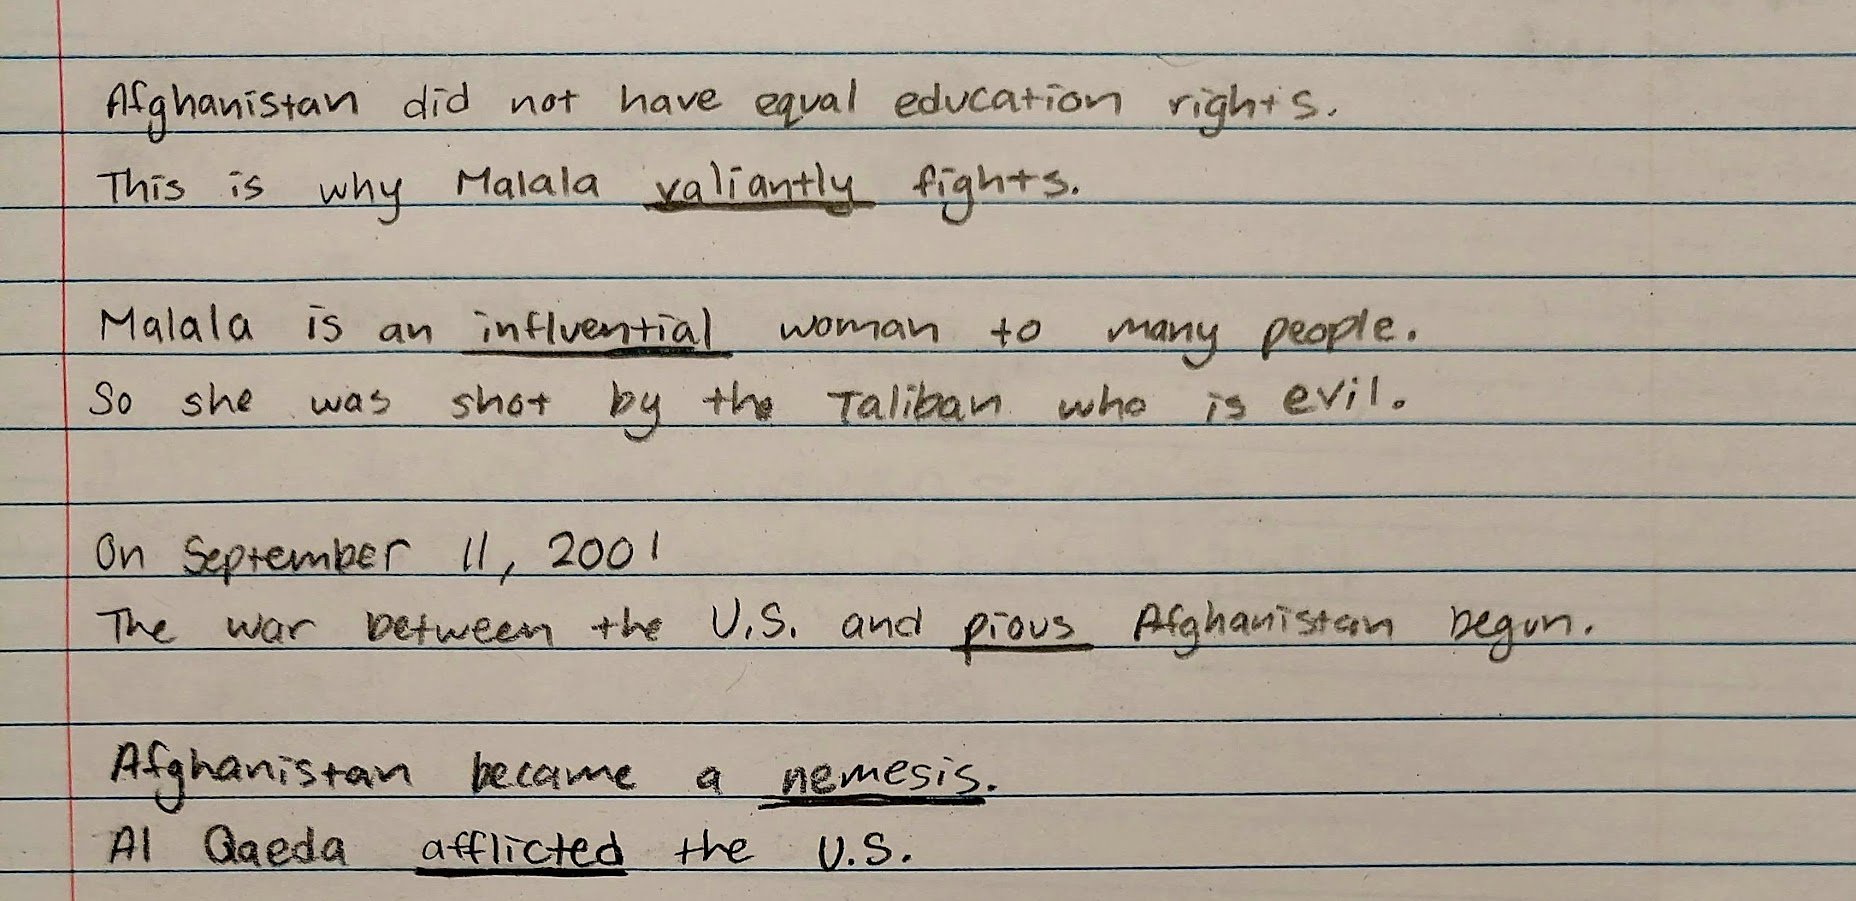 Afghanistan did not have equal education rights.
This is why Malala valiantly fights.
Malala is an influential woman to many people.
So she was shot by the Taliban who is evil.
On September 11, 2001
The war between the U.S. and pious Afghanistan begun.
Afghanistan became a nemesis.
Al Qaeda afflicted the U.S.